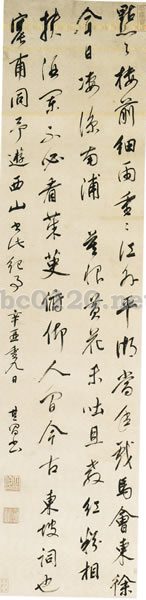 點〻樓前細雨重〻江外平湖當年戲馬會東徐
今日凄涼南浦 莫恨黃花未吐且教紅粉相
扶酒闌不必看茱萸俯仰人間今古東坡詞也
甫同予遊西山書此紀事 辛亥九日 其昌書